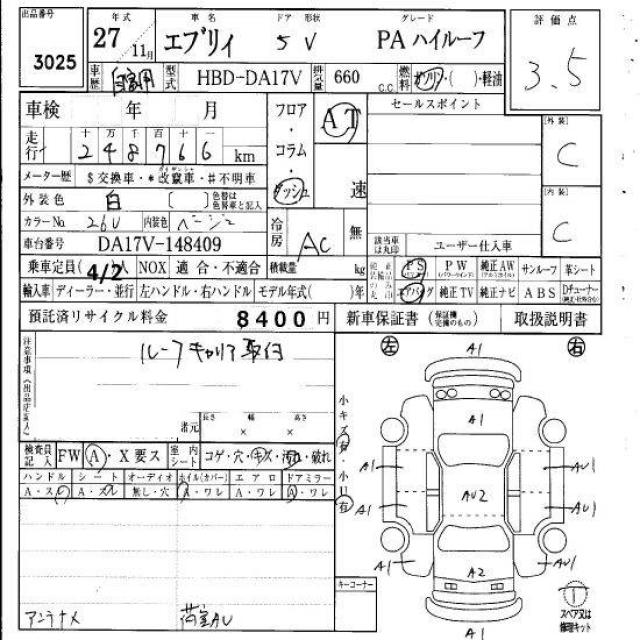 出品番号 3025
年式 27年 11月
車名 エブリィ
ドア 形状 5 V
グレード PA ハイルーフ
評価点 3.5
車歴 自家用
型式 HBD-DA17V
排気量 660 C.C.
燃料 ガソリン・( )・軽油
車検 年 月
フロア・コラム・ダッシュ
AT 速
セールスポイント
外装 C
走行 十万千百十一
248766 km
メーター歴 $交換車・*改竄車・#不明車
内装 C
外装色 白 [ ] 色替は色替車と記入
カラーNo. 26U 内装色 ベージュ
冷房 AC 無
該当車は丸印 ユーザー仕入車
車台番号 DA17V-148409
乗車定員 4/2人 NOX 適合・不適合 積載量 kg
PS PW 純正AW サンルーフ 革シート
輸入車 ディーラー・並行 左ハンドル・右ハンドル モデル年式( )年
エアバッグ 純正TV 純正ナビ ABS
預託済リサイクル料金 8400円
新車保証書 取扱説明書
注意事項 ルーフキャリア取付
左 右
諸元 長さ × 幅 × 高さ
小キズ 右
小凹 右
検査員記入 FW A・X要ス 室内シート コゲ・穴・キズ・汚れ・破れ
ハンドル シート オーディオ ホイル(カバー) エアロ ドアミラー
A・スレ A・スレ 無し・穴 A・ワレ A・ワレ A・ワレ
A1
A1
A1 A1 AU1 AU1
AU2
A1 A1 AU1 AU1
A1 A1
A2
A1
キーコーナー
アンテナメ 荷室AU
スペア又は修理キット